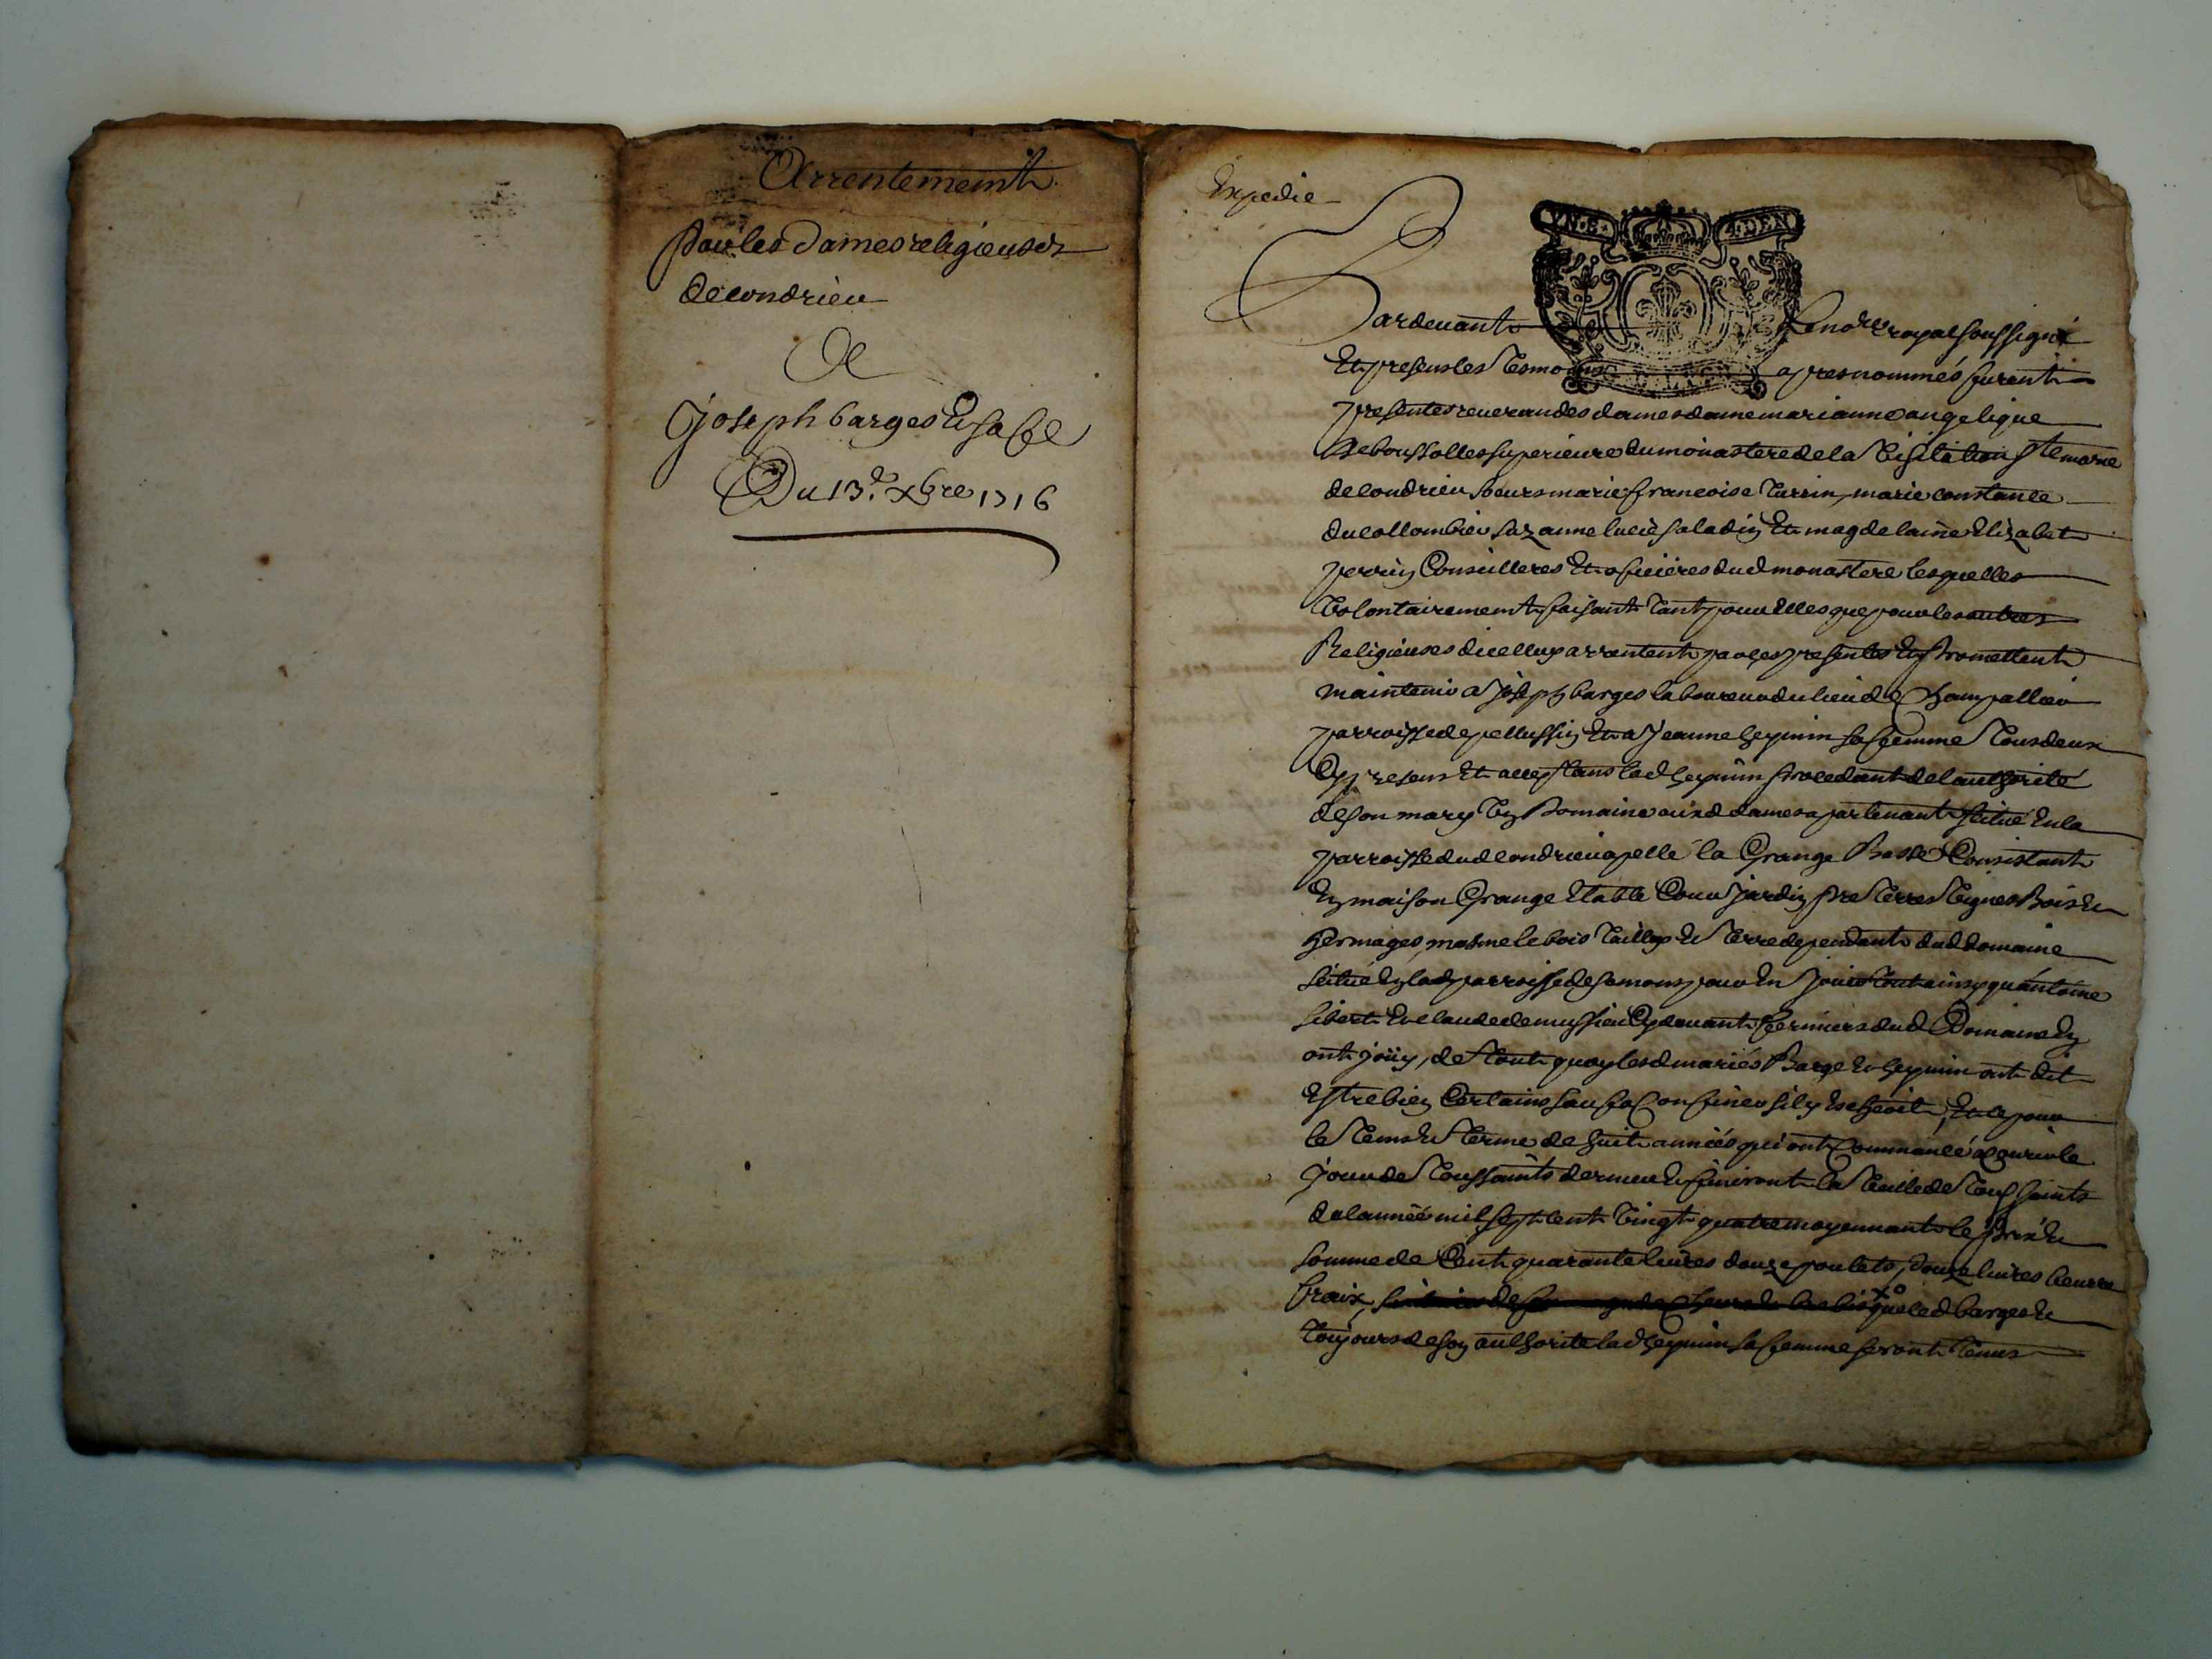 Arrentement
Par les Dames religieuses
de condrieu
A
Joseph barges Et sa fe
Du 13.e Xbre 1716
Expedié
VN.S. 4.DEN
Pardevant Le no.re royal soussigné
Et presens les tesmoins apres nommés furent
presentes reverandes dames dame marianne angelique
de boussolles superieure du monastere de la visitation Ste marie
de condrieu soeurs marie francoise Turrin, marie constance
du collombier suzanne lucie saladin Et magdelaine Elizabet
perrin Conseilleres Et oficieres dud monastere lesquelles
volontairement faisant tant pour Elles que pour les autres
Religieuses dicelluy arrentent par ces presentes Et promettent
maintenir a joseph barges laboureur du lieu de Champallier
parroisse de pellussin Et a Jeanne heymin sa femme tous deux
Cy presens Et acceptans lad heymin procedant de lauthorité
de son mary Un Domaine ausd dames apartenant scitué En la
parroisse dud condrieu apellé la Grange Basse Consistant
En maison Grange Etable Cour Jardin pre terres vignes Bois Et
hermages, mesme le bois taillis Et terre dependant dud domaine
scitué En lad parroisse de semons pour En jouir tout ainsy quántoine
libert Et claude demussieu Cy devant fermiers dud Domaine En
ont joüy, de tout quoy lesd mariés Barge Et heymin ont dit
Estre bien Certains sauf a Confiner sil y Escheoit, Et ce pour
le tems Et terme de huit années qui ont Commancé a courir le
jour de toussaints dernier Et finiront la veille de toussaints
de lannéé mil sept cent vingt quatre moyennant le prix Et
somme de Cent quarante livres douze poulets, douze livres beurre
fraix, que led barges Et
toujours de son authorité lad heymin sa femme seront tenus